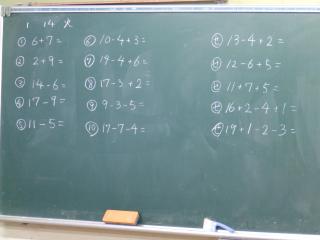 1 14 火
① 6+7=
② 2+9=
③ 14-6=
④ 17-9=
⑤ 11-5=
⑥ 10-4+3=
⑦ 19-4+6=
⑧ 17-3+2=
⑨ 9-3-5=
⑩ 17-7-4=
13-4+2=
12-6+5=
11+7+5=
16+2-4+1=
19+1-2-3=